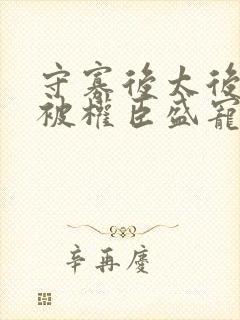 守寡後太後
被權臣盛寵
辛再慶